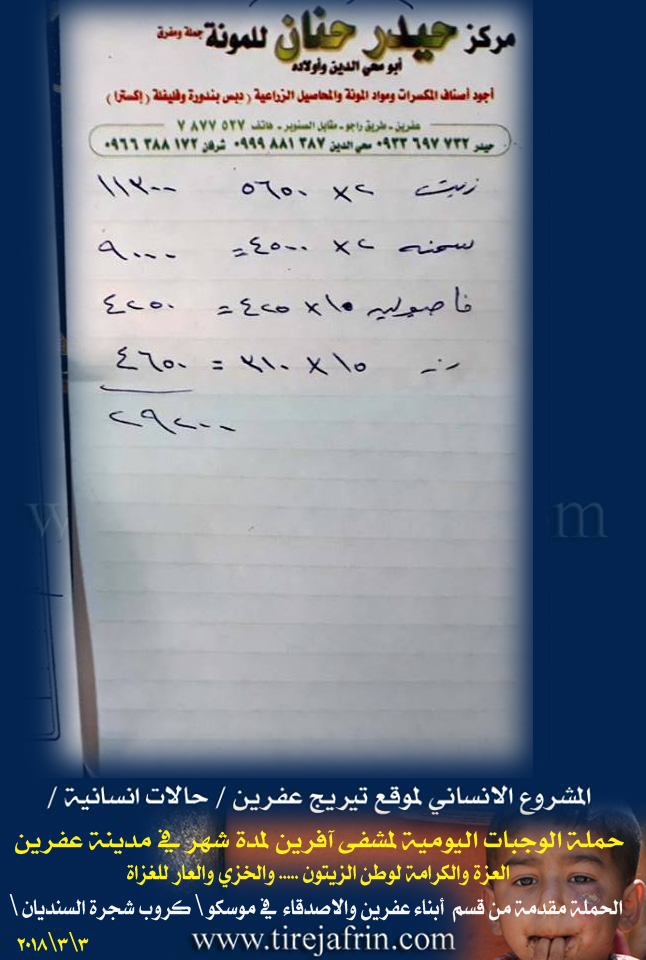 مركز حيدر حنان للمونة جملة ومفرق
أبو محي الدين وأولاده
أجود أصناف المكسرات ومواد المونة والمحاصيل الزراعية ( دبس بندورة وفليفلة ( إكسترا )
عفرين - طريق راجو - مقابل الصنوبر - هاتف ٧ ٨٧٧ ٥٢٧
حيدر ٠٩٣٣ ٦٩٧ ٧٣٢ محي الدين ٠٩٩٩ ٨٨١ ٣٨٧ شرفان ٠٩٦٦ ٣٨٨ ١٧٢
زيت ٢ × ٥٦٥٠ ١١٣٠٠
سمنه ٢ × ٤٥٠٠ = ٩٠٠٠
فاصوليه ١٠ × ٤٢٥ = ٤٢٥٠
١٠ × = ٤٦٥٠
٢٩٢٠٠
المشروع الانساني لموقع تيريج عفرين / حالات انسانية /
حملة الوجبات اليومية لمشفى آفرين لمدة شهر في مدينة عفرين
العزة والكرامة لوطن الزيتون ..... والخزي والعار للغزاة
الحملة مقدمة من قسم أبناء عفرين والاصدقاء في موسكو \ كروب شجرة السنديان \
www.tirejafrin.com ٢٠١٨\٣\٣